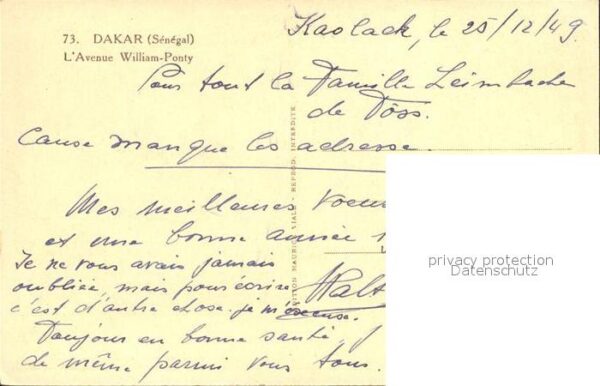 73. DAKAR (Sénégal)
L'Avenue William-Ponty
Kaolack, le 25/12/49
Pour tout la Famille Leimbacher
de Töss.
Cause manque les adresse.
Mes meilleures voeu
et une bonne année 1
Je ne vous avais jamais
oubliée, mais pour écrire
c'est d'autre chose, je m'excuse.
Walt
Toujour en bonne santé,
de même parmi vous tous.
REPROD. INTERDITE
privacy protection
Datenschutz